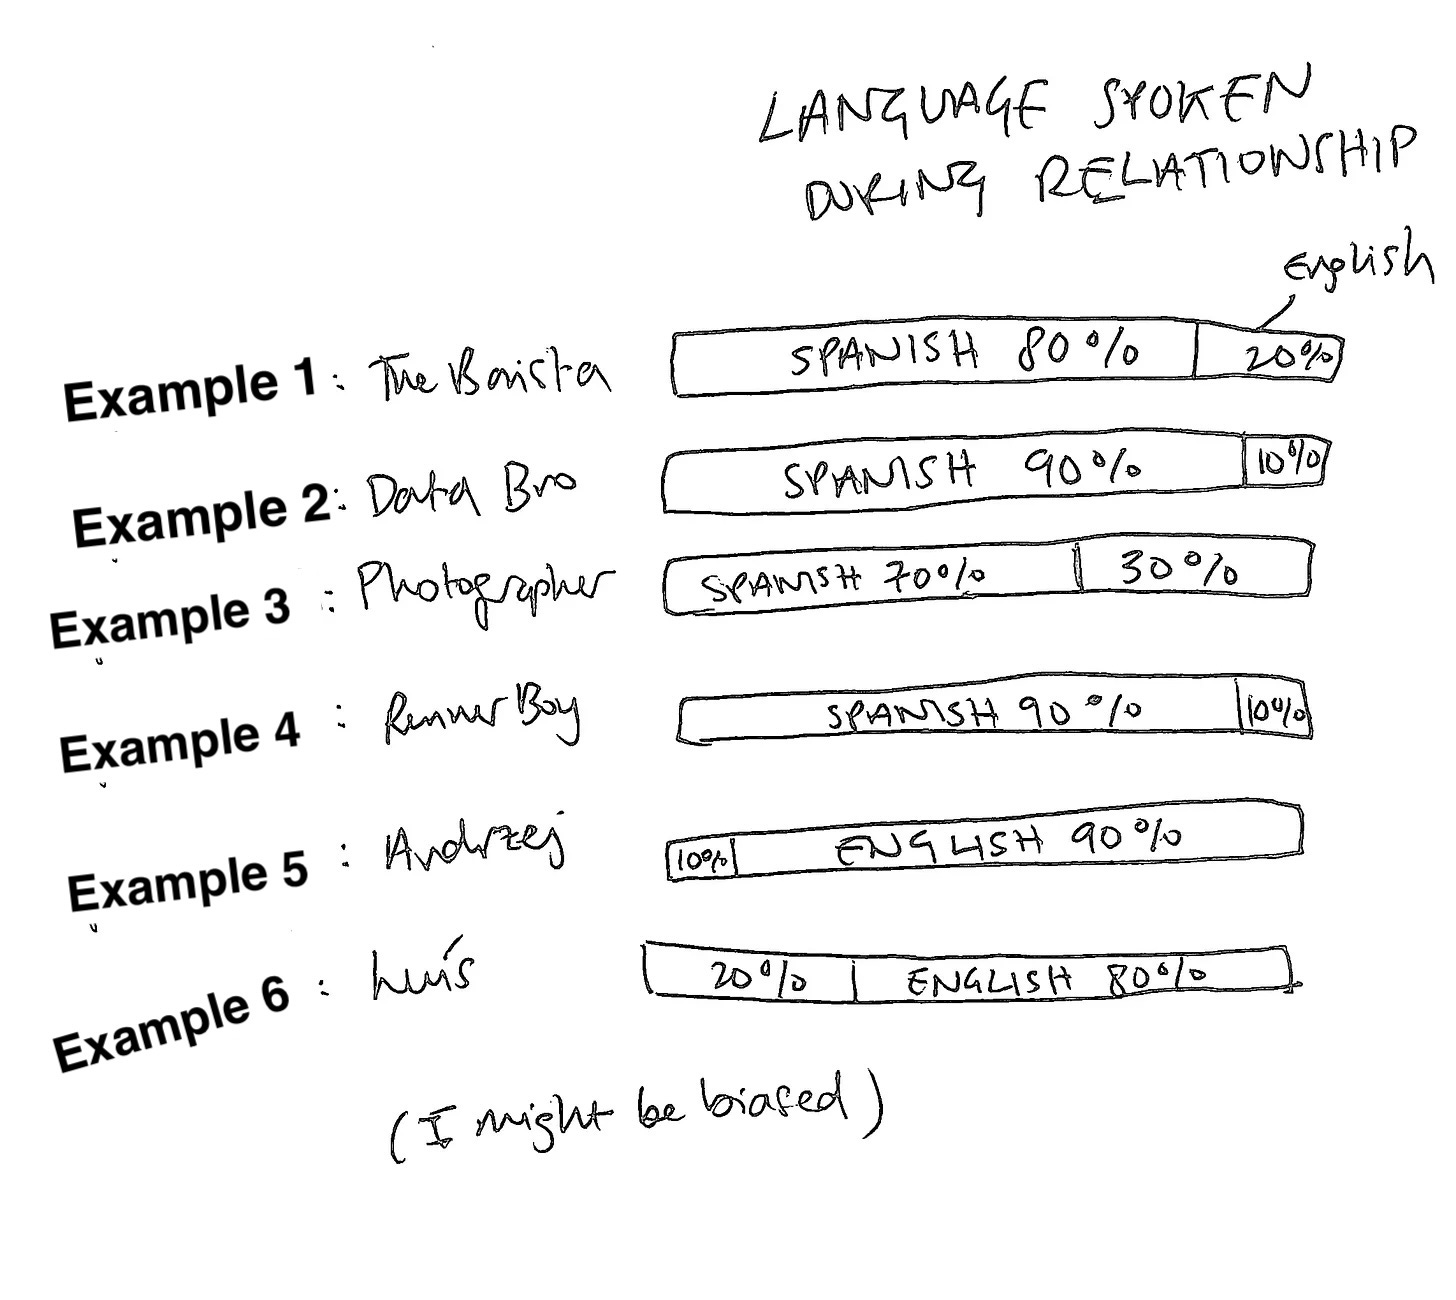 LANGUAGE SPOKEN
DURING RELATIONSHIP
English
Example 1: The Barista SPANISH 80% 20%
Example 2: Data Bro SPANISH 90% 10%
Example 3: Photographer SPANISH 70% 30%
Example 4: Runner Boy SPANISH 90% 10%
Example 5: Andrzej 10% ENGLISH 90%
Example 6: Luís 20% ENGLISH 80%
(I might be biased)